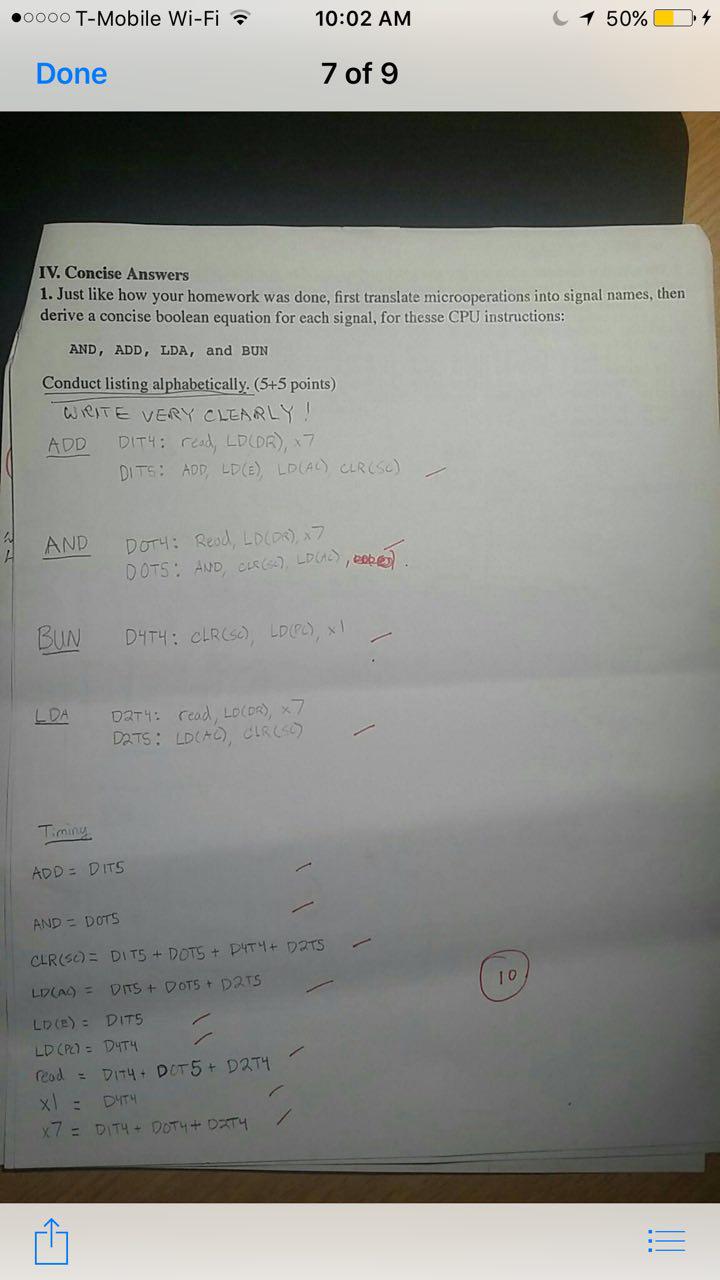 T-Mobile Wi-Fi 10:02 AM 50%
Done 7 of 9
IV. Concise Answers
1. Just like how your homework was done, first translate microoperations into signal names, then
derive a concise boolean equation for each signal, for thesse CPU instructions:
AND, ADD, LDA, and BUN
Conduct listing alphabetically. (5+5 points)
WRITE VERY CLEARLY!
ADD D1T4: read, LD(DR), x7
D1T5: ADD, LD(E), LD(AC) CLR(SC)
AND D0T4: Read, LD(DR), x7
D0T5: AND, CLR(SC), LD(AC),
BUN D4T4: CLR(SC), LD(PC), x1
LDA D2T4: read, LD(DR), x7
D2T5: LD(AC), CLR(SC)
Timing
ADD = D1T5
AND = D0T5
CLR(SC) = D1T5 + D0T5 + D4T4 + D2T5
LD(AC) = D1T5 + D0T5 + D2T5
10
LD(E) = D1T5
LD(PC) = D4T4
read = D1T4 + D0T5 + D2T4
x1 = D4T4
x7 = D1T4 + D0T4 + D2T4